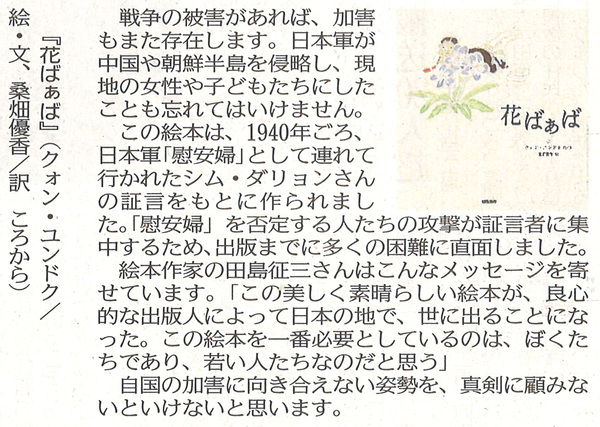 『花ばぁば』（クォン・ユンドク／
絵・文、桑畑優香／訳　ころから）
　戦争の被害があれば、加害
もまた存在します。日本軍が
中国や朝鮮半島を侵略し、現
地の女性や子どもたちにした
ことも忘れてはいけません。
　この絵本は、1940年ごろ、
日本軍「慰安婦」として連れて
行かれたシム・ダリョンさん
の証言をもとに作られまし
た。「慰安婦」を否定する人たちの攻撃が証言者に集
中するため、出版までに多くの困難に直面しました。
　絵本作家の田島征三さんはこんなメッセージを寄
せています。「この美しく素晴らしい絵本が、良心
的な出版人によって日本の地で、世に出ることにな
った。この絵本を一番必要としているのは、ぼくた
ちであり、若い人たちなのだと思う」
　自国の加害に向き合えない姿勢を、真剣に顧みな
いといけないと思います。
花ばぁば